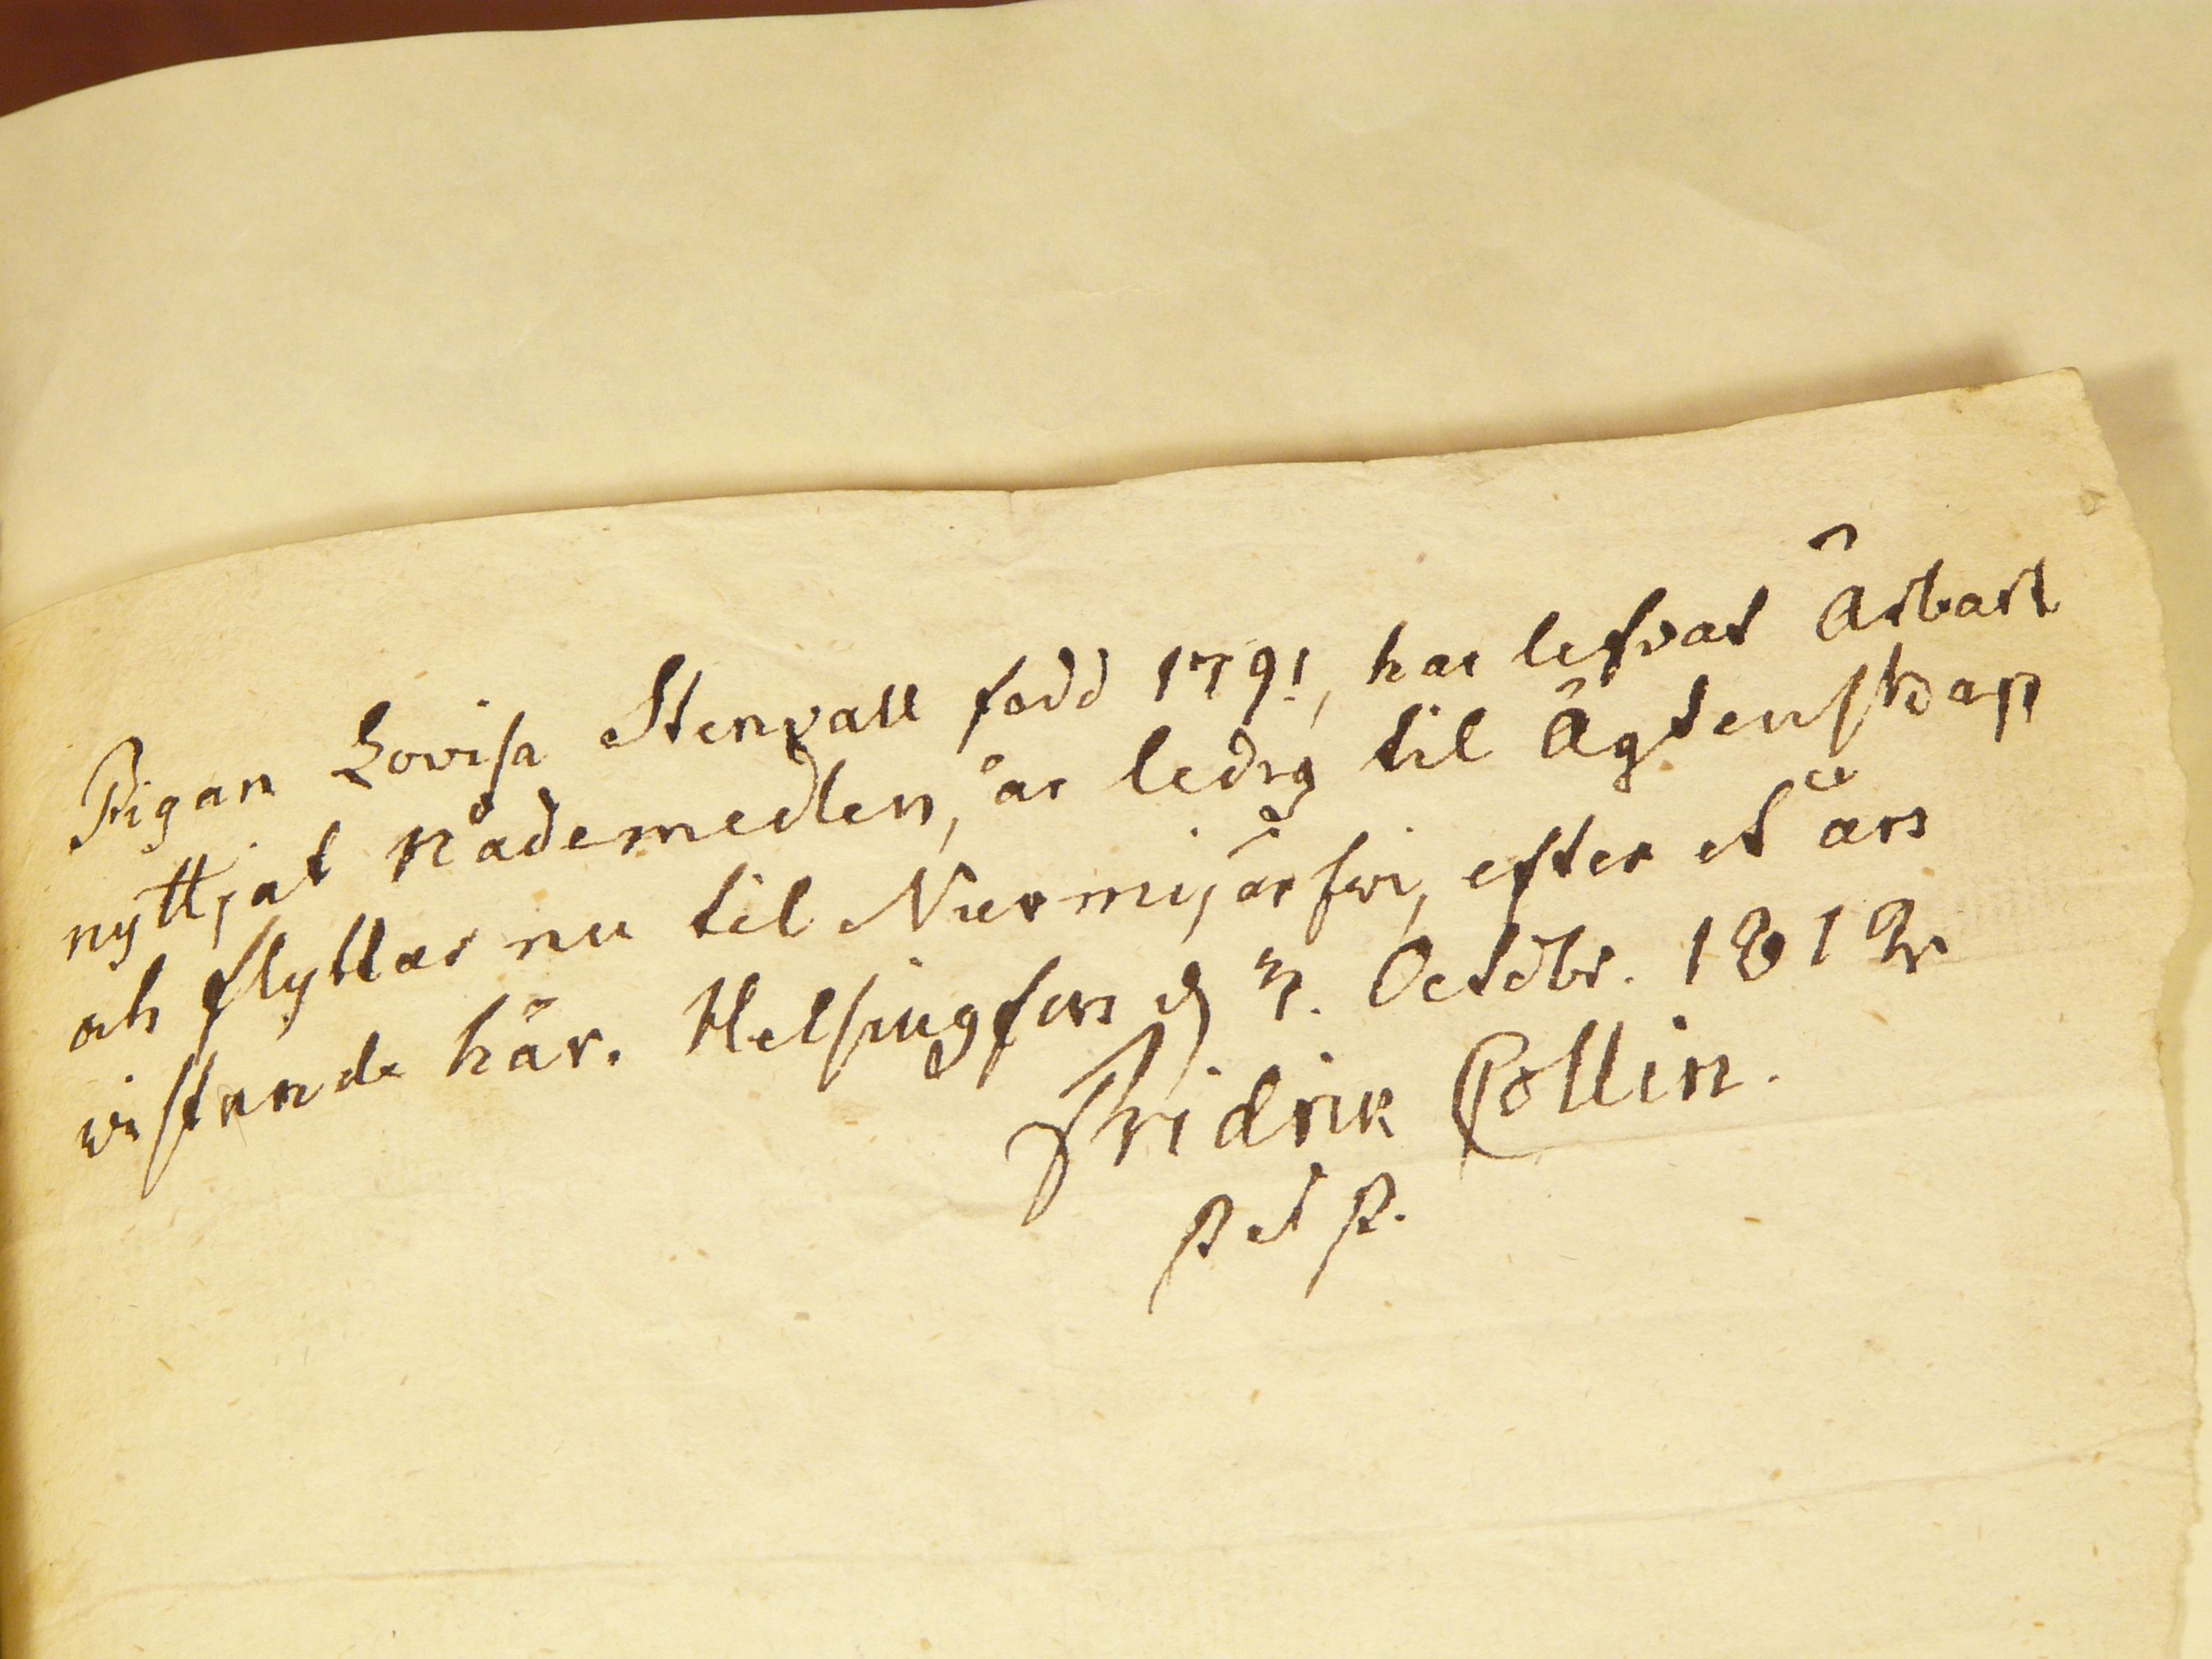 Pigan Lovisa Stenvall född 1791, har lefvat Ärbart
nyttjat nådemedlen, är ledig til Ägtenskap
och flyttar nu til Nurmijärfvi, efter et års
vistande här. Helsingfors d. 3. Octobr. 1812
Fridrik Collin.
p et p.